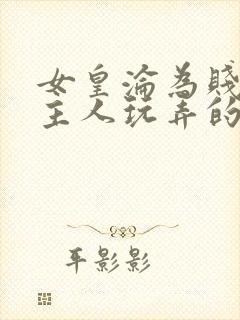 女皇淪為賤
主人玩弄的
平影影